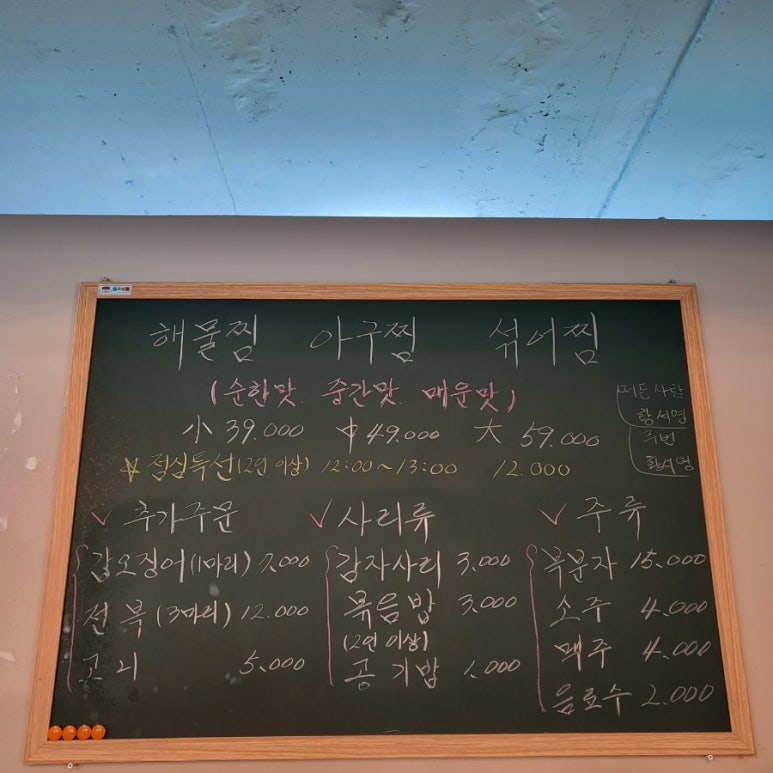 해물찜 아구찜 섞어찜
(순한맛. 중간맛. 매운맛)
小 39.000 中 49.000 大 59.000
점심특선(2인 이상) 12:00~13:00 12.000
떠든 사람
황서영
주번
황서영
✓ 추가주문
갑오징어(1마리) 7.000
전복(3마리) 12.000
고니 5.000
✓ 사리류
감자사리 3.000
볶음밥 3.000
(2인 이상)
공기밥 1.000
✓ 주류
복분자 15.000
소주 4.000
맥주 4.000
음료수 2.000